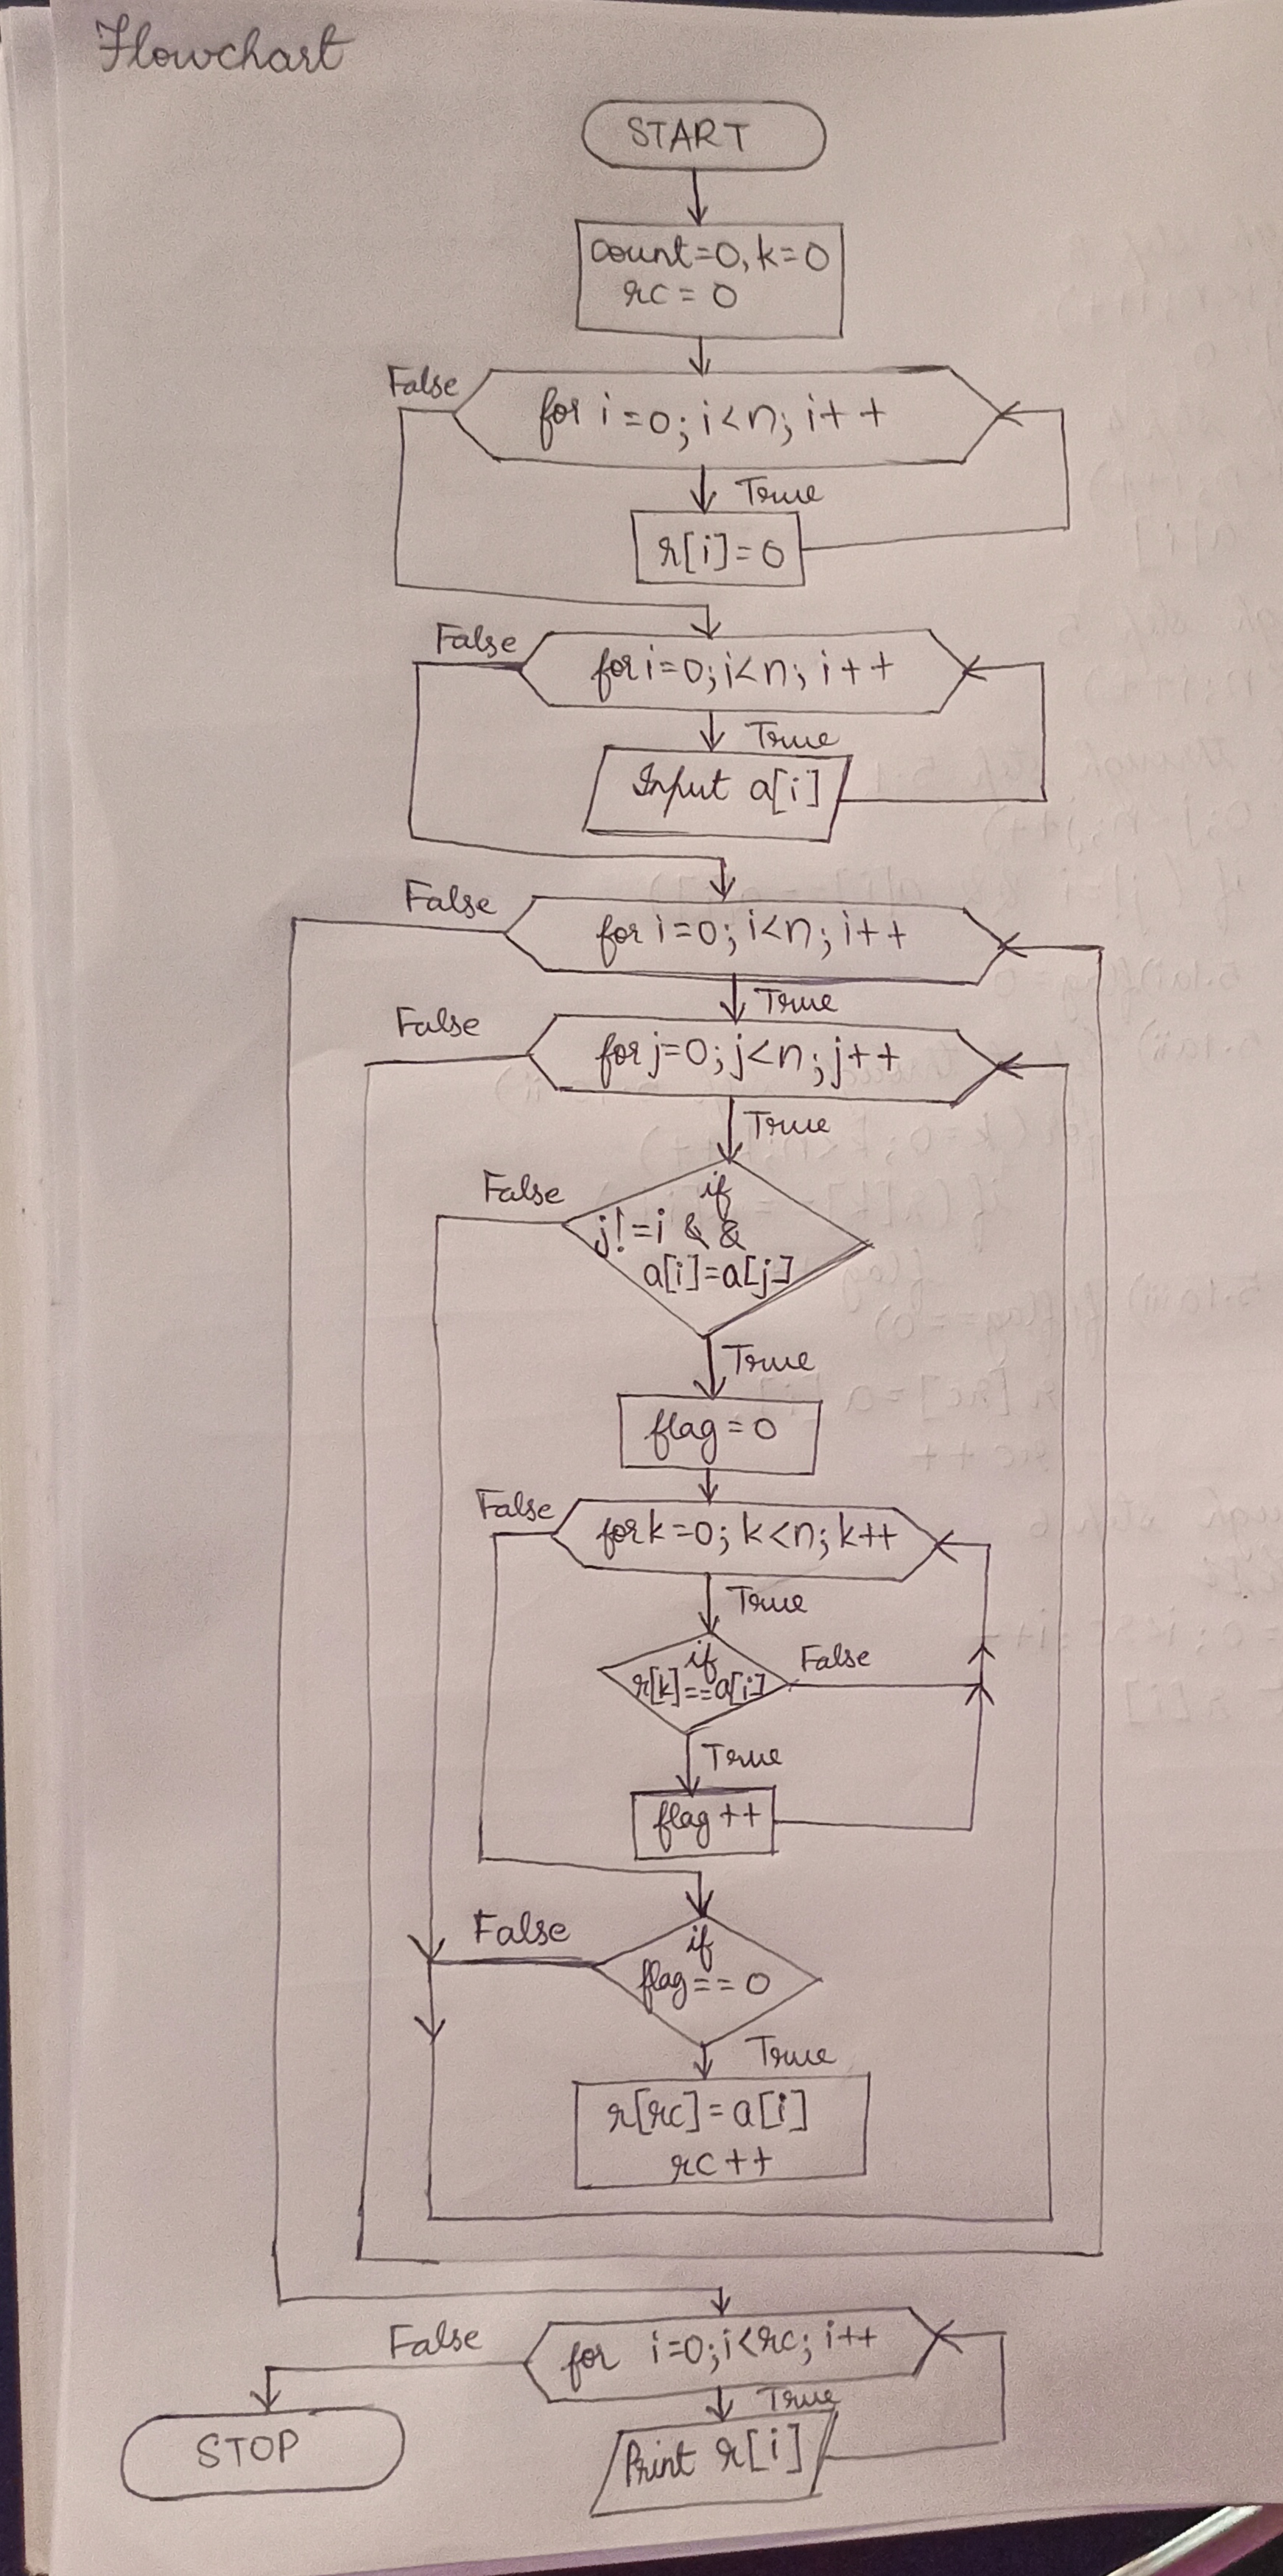 Flowchart
START
count=0, k=0
rc = 0
False
for i=0; i<n; i++
True
r[i]=0
False
for i=0; i<n; i++
True
Input a[i]
False
for i=0; i<n; i++
True
False
for j=0; j<n; j++
True
False
if
j!=i &&
a[i]=a[j]
True
flag=0
False
for k=0; k<n; k++
True
if
r[k]==a[i]
False
True
flag++
False
if
flag==0
True
r[rc]=a[i]
rc++
False
for i=0; i<rc; i++
True
STOP
Print r[i]